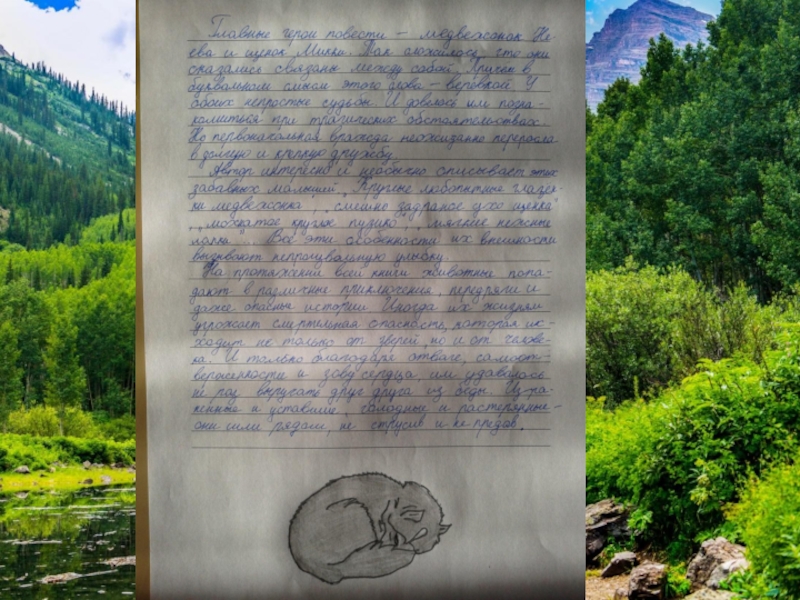 Главные герои повести – медвежонок Не
ева и щенок Микки. Так сложилось, что они
оказались связаны между собой. Причем в
буквальном смысле этого слова – веревкой. У
обоих непростые судьбы. И довелось им позна-
комиться при трагических обстоятельствах.
Но первоначальная вражда неожиданно переросла
в долгую и крепкую дружбу.
Автор интересно и необычно описывает этих
забавных малышей. „Круглые любопытные глазен-
ки медвежонка", „смешно задранное ухо щенка"
, „мохнатое круглое пузико", „мягкие нежные
лапки"... Все эти особенности их внешности
вызывают непроизвольную улыбку.
На протяжении всей книги животные попа-
дают в различные приключения, передряги и
даже опасные истории. Иногда их жизням
угрожает смертельная опасность, которая ис-
ходит не только от зверей, но и от челове-
ка. И только благодаря отваге, самоот-
верженности и зову сердца, им удавалось
не раз выручать друг друга из беды. Изра-
ненные и уставшие, голодные и растерянные –
они шли рядом, не струсив и не предав.